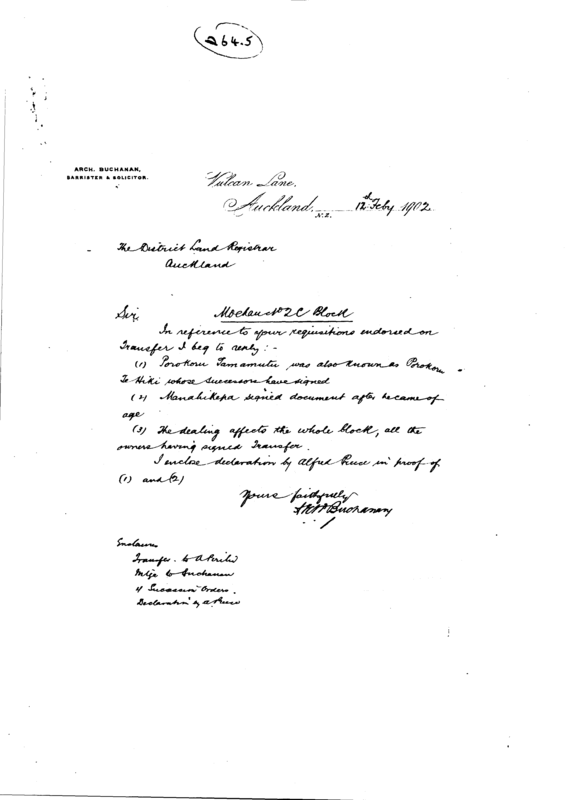 264.5
ARCH. BUCHANAN,
BARRISTER & SOLICITOR.
Vulcan Lane,
Auckland, N.Z. 12th Feby 1902
The District Land Registrar
Auckland
Sir, Moehau No 2C Block
In reference to your requisitions endorsed on
Transfer I beg to reply:-
(1) Porokoru Tamamutu was also known as Porokoru
Te Hiki whose successors have signed
(2) Manahi Kepa signed document after he came of
age
(3) The dealing affects the whole block, all the
owners having signed Transfer.
I enclose declaration by Alfred in proof of
(1) and (2)
Yours faithfully
Buchanan
Enclosures
Transfer to
Mtge to Buchanan
4 Succession Orders.
Declaration by A